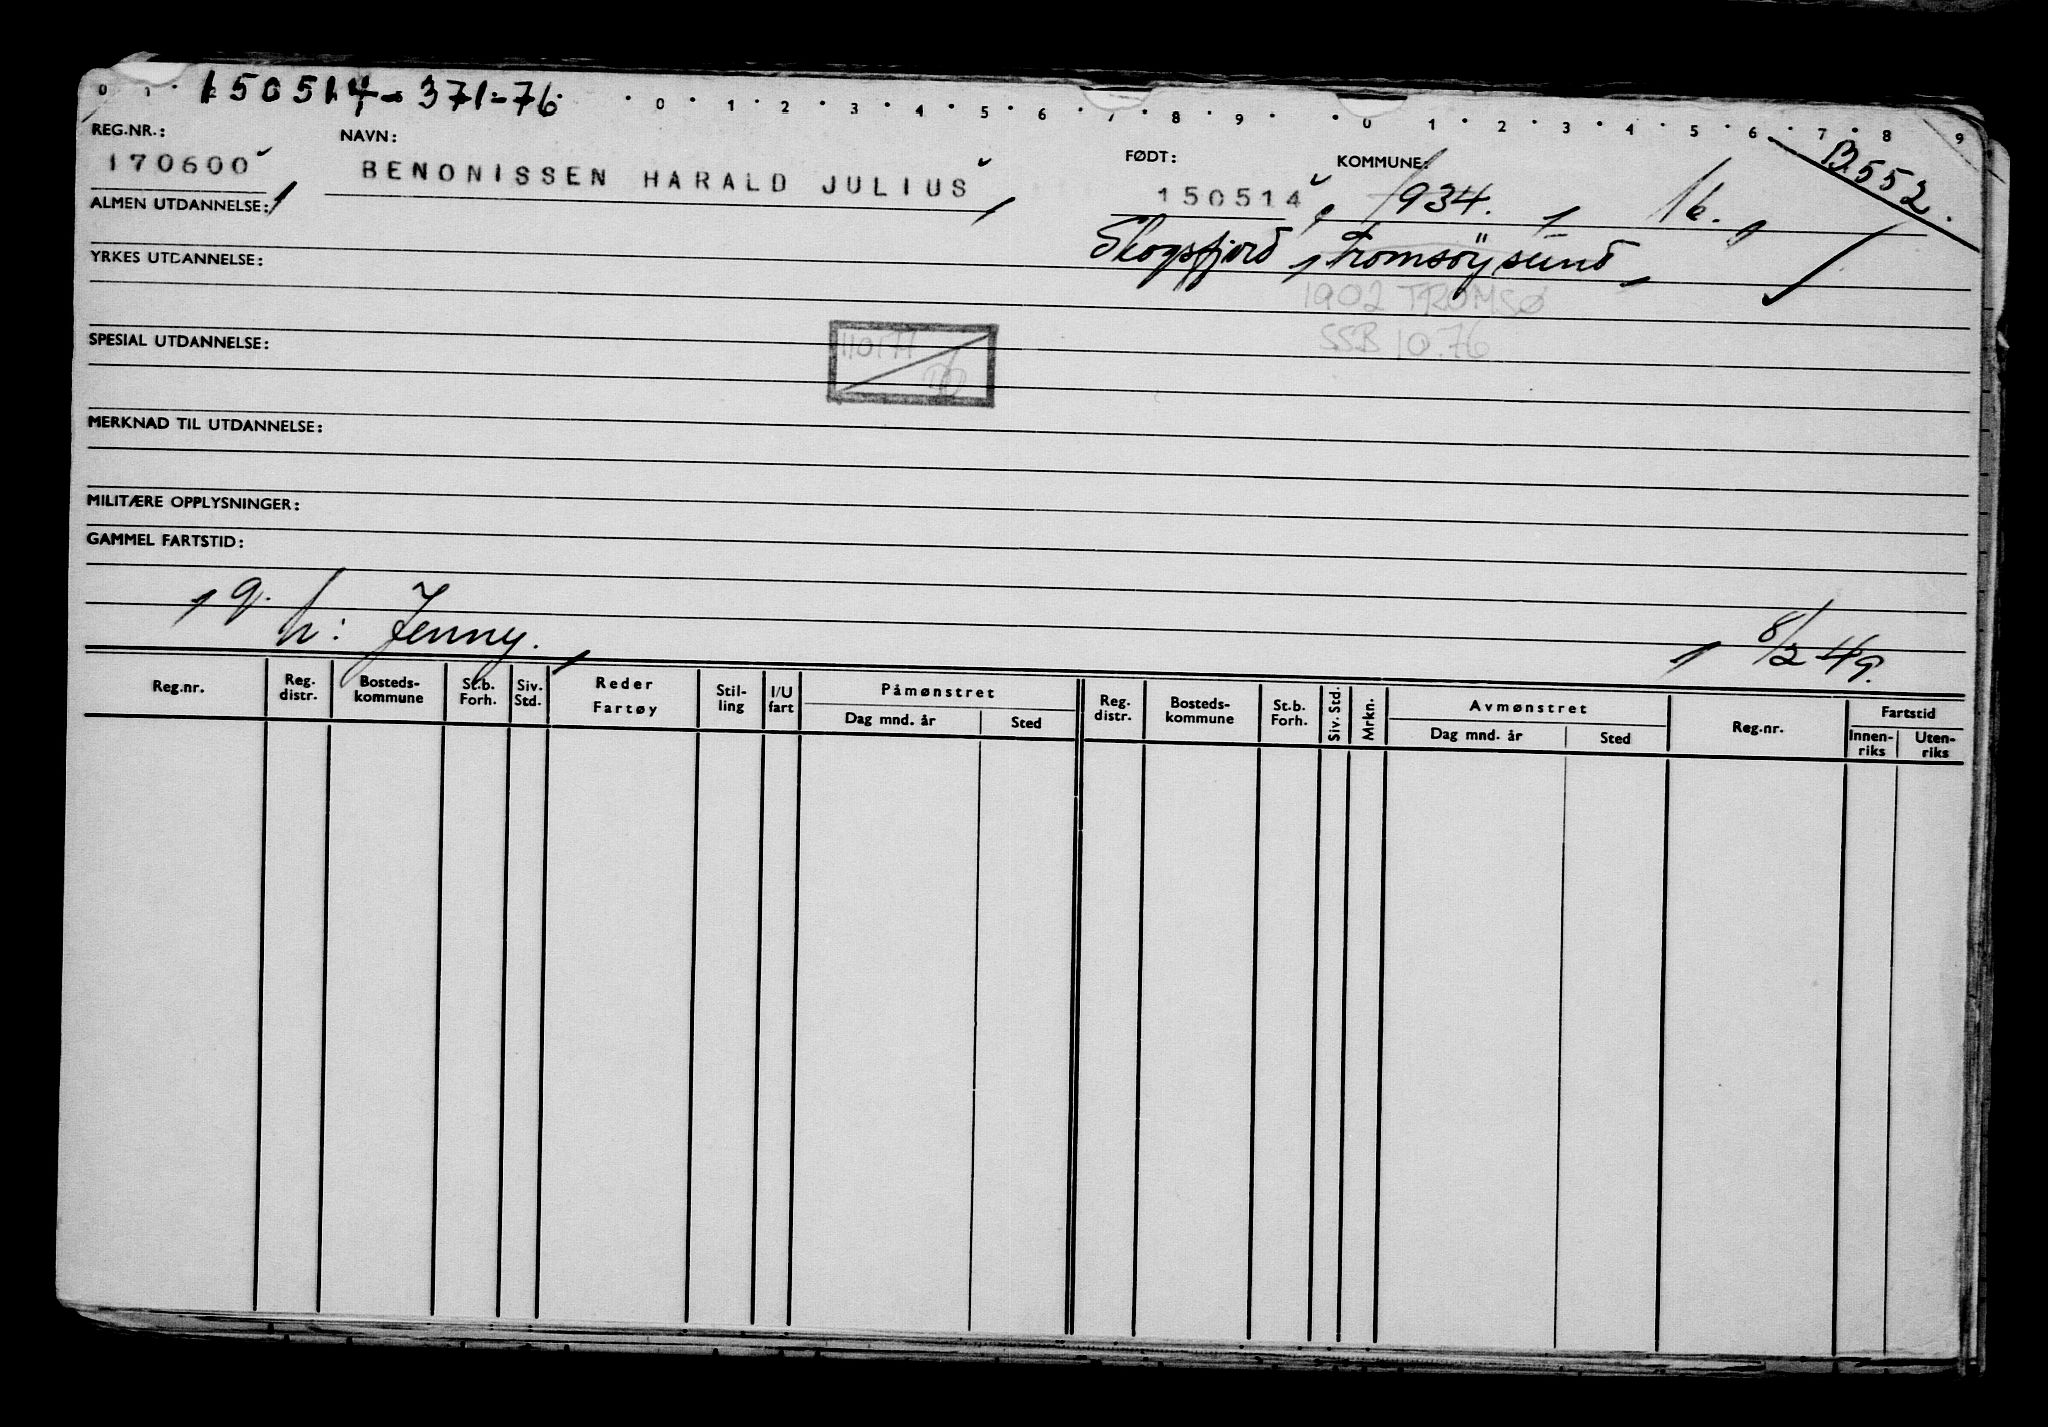 150514-371-76
0 1 0 1 2 3 4 5 6 7 8 9 0 1 2 3 4 5 6 7 8 9
REG.NR.: NAVN: FØDT: KOMMUNE: B.552.
170600 BENONISSEN HARALD JULIUS 150514 1934. 16.
ALMEN UTDANNELSE:
Skogsfjord, Tromsöysund
YRKES UTDANNELSE:
1902 TROMSØ
SSB 10.76
SPESIAL UTDANNELSE:
MERKNAD TIL UTDANNELSE:
MILITÆRE OPPLYSNINGER:
GAMMEL FARTSTID:
g. h: Jenny. 8/2 49.
Reg.nr. Reg. distr. Bosteds-kommune St.b. Forh. Siv. Std. Reder Fartøy Stil-ling I/U fart Påmønstret Dag mnd. år Sted Reg. distr. Bosteds-kommune St.b. Forh. Siv. Std. Mrkn. Avmønstret Dag mnd. år Sted Reg.nr. Fartstid Innen-riks Uten-riks